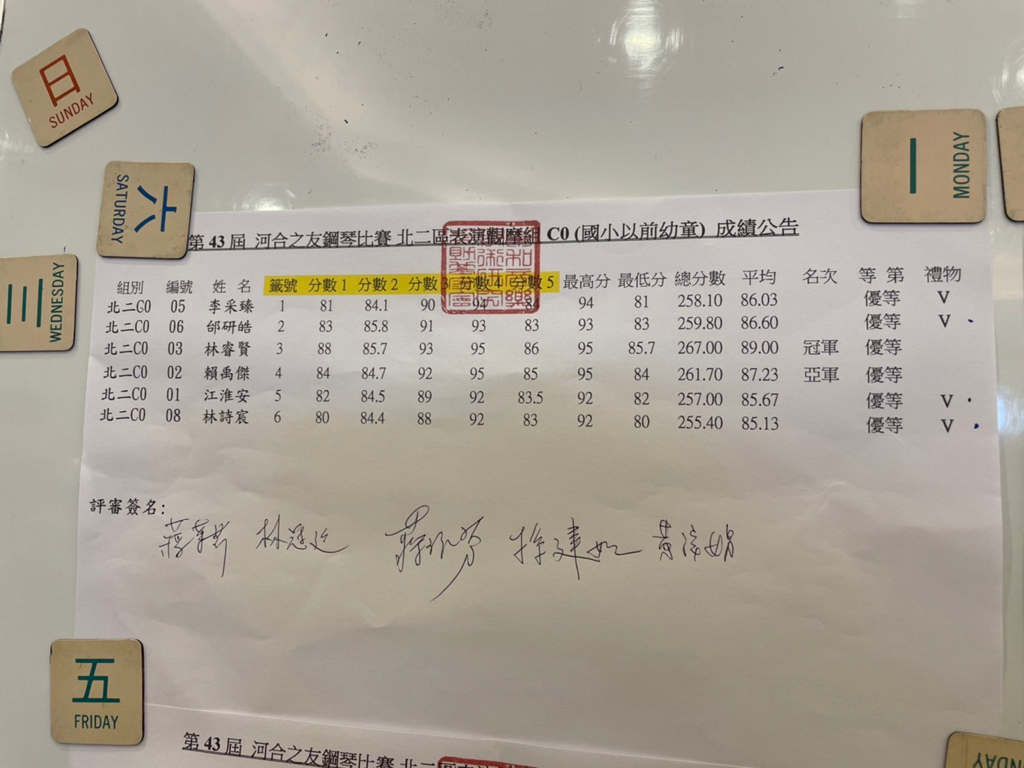 日
SUNDAY
六
SATURDAY
一
MONDAY
三
WEDNESDAY
第 43 屆 河合之友鋼琴比賽 北二區表演觀摩組 C0 (國小以前幼童) 成績公告
組別 編號 姓 名 籤號 分數 1 分數 2 分數 3 分數 4 分數 5 最高分 最低分 總分數 平均 名次 等 第 禮物
北二C0 05 李采臻 1 81 84.1 90 94 84 94 81 258.10 86.03 優等 V
北二C0 06 邰研皓 2 83 85.8 91 93 83 93 83 259.80 86.60 優等 V
北二C0 03 林睿賢 3 88 85.7 93 95 86 95 85.7 267.00 89.00 冠軍 優等
北二C0 02 賴禹傑 4 84 84.7 92 95 85 95 84 261.70 87.23 亞軍 優等
北二C0 01 江淮安 5 82 84.5 89 92 83.5 92 82 257.00 85.67 優等 V
北二C0 08 林詩宸 6 80 84.4 88 92 83 92 80 255.40 85.13 優等 V
評審簽名:
五
FRIDAY
第 43 屆 河合之友鋼琴比賽 北二區表演